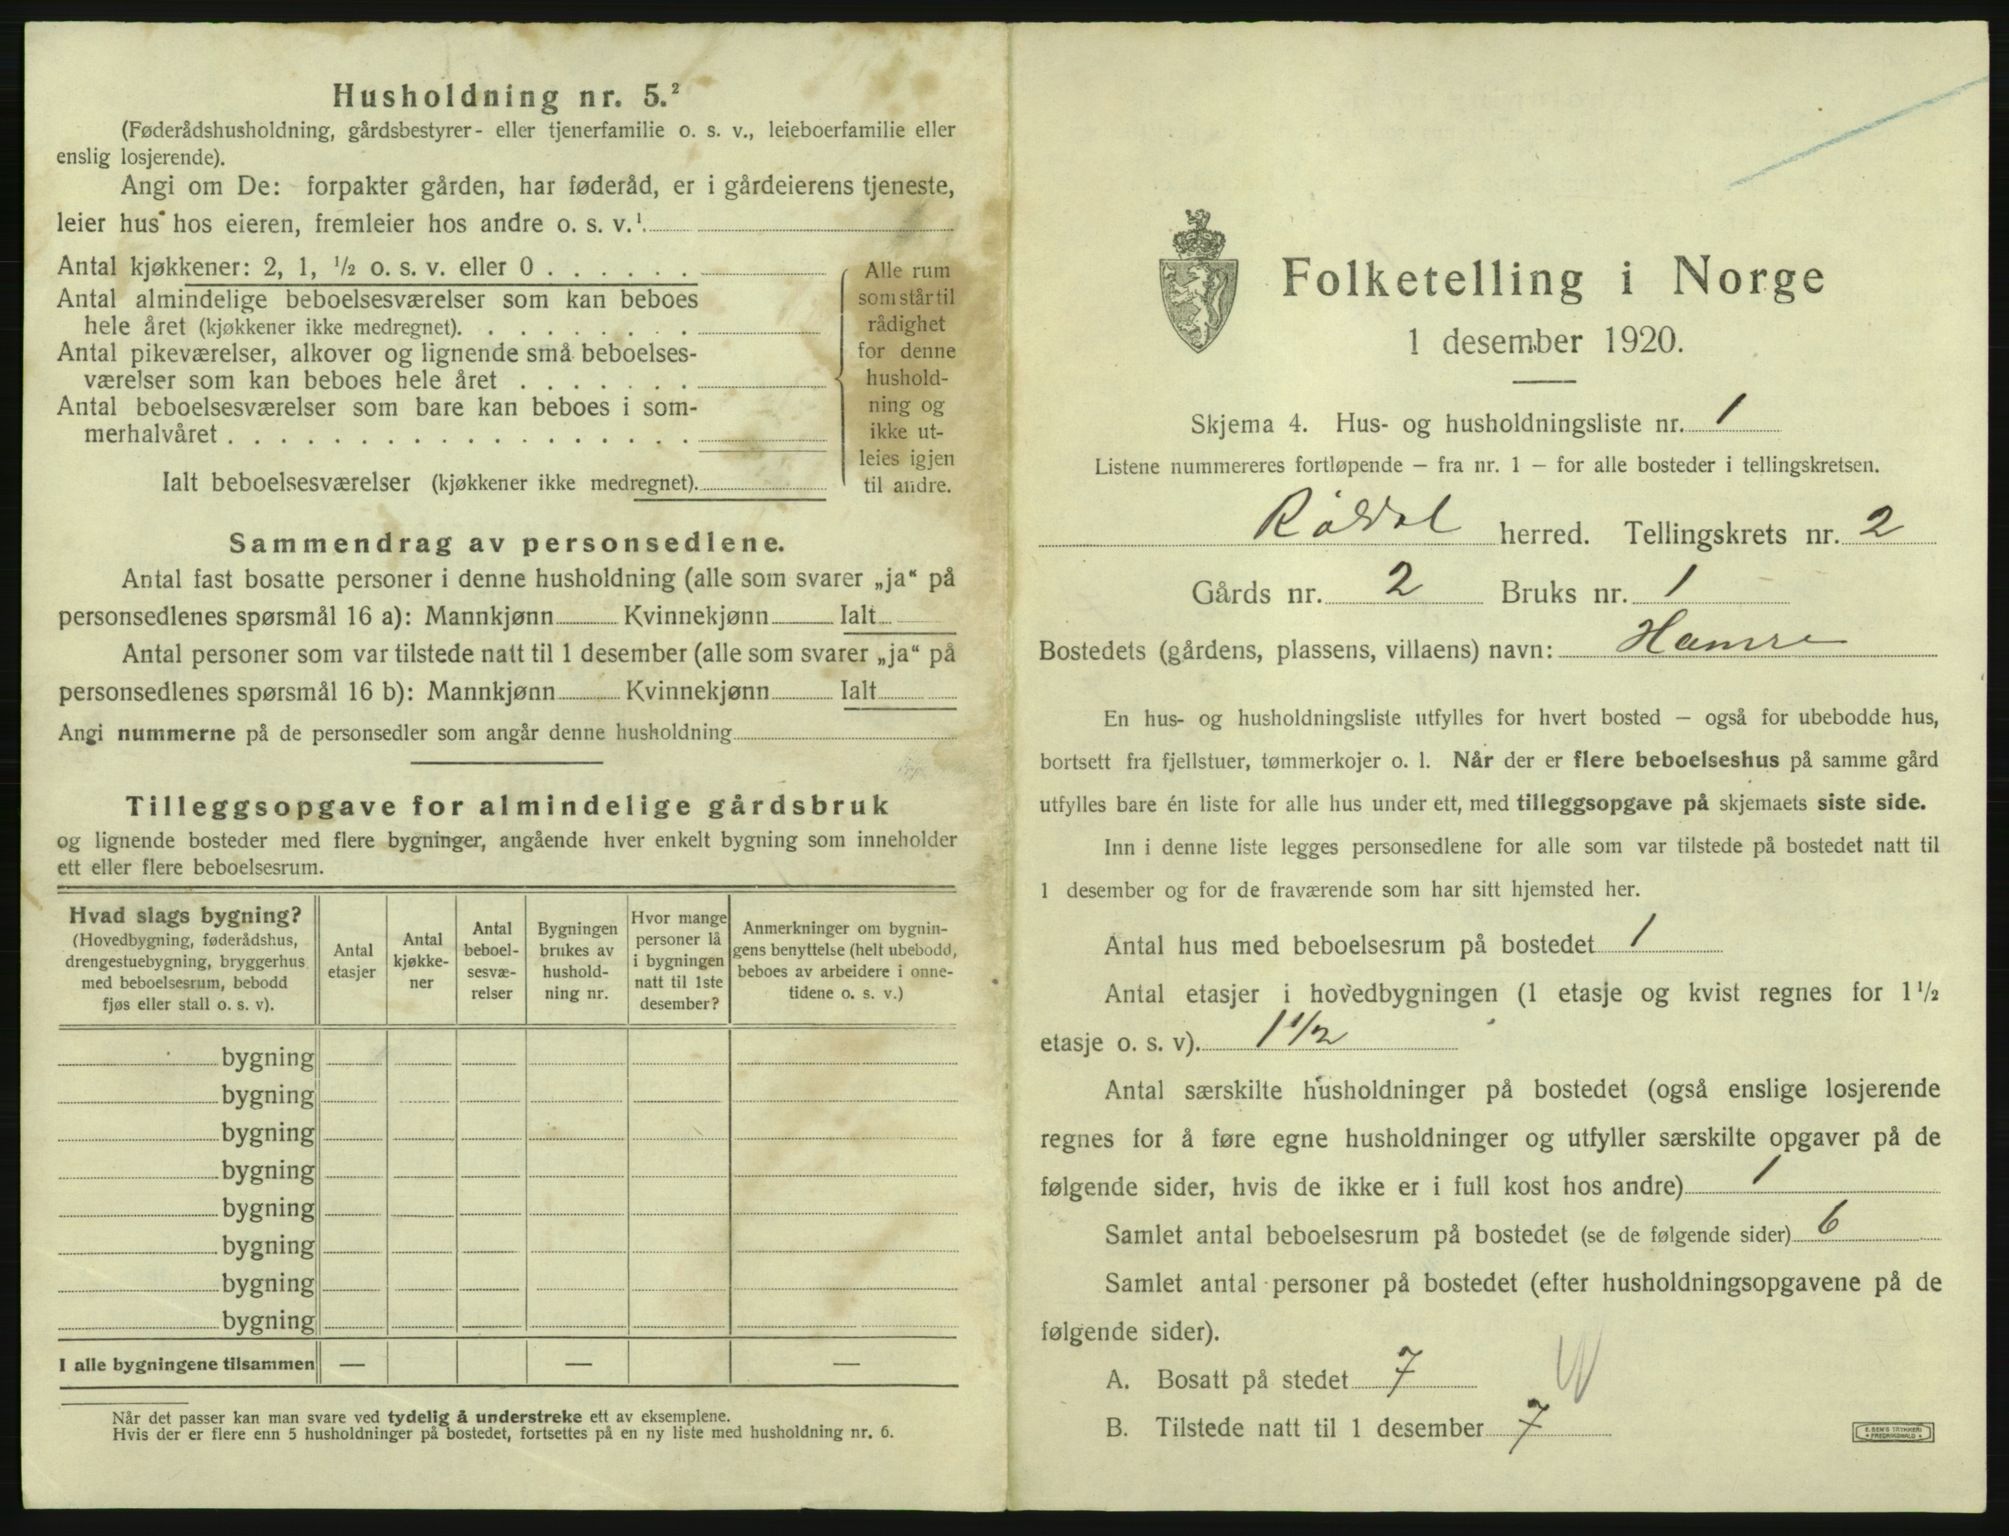 Husholdning nr. 5.²
(Føderådshusholdning, gårdsbestyrer- eller tjenerfamilie o. s. v., leieboerfamilie eller
enslig losjerende).
Angi om De: forpakter gården, har føderåd, er i gårdeierens tjeneste,
leier hus hos eieren, fremleier hos andre o. s. v.¹
Antal kjøkkener: 2, 1, ½ o. s. v. eller 0 . . . . . .
Antal almindelige beboelsesværelser som kan beboes
hele året (kjøkkener ikke medregnet). . . . . . . . .
Antal pikeværelser, alkover og lignende små beboelses-
værelser som kan beboes hele året . . . . . . .
Antal beboelsesværelser som bare kan beboes i som-
merhalvåret . . . . . . . . . . . . . . . . . .
Ialt beboelsesværelser (kjøkkener ikke medregnet).
Alle rum
som står til
rådighet
for denne
hushold-
ning og
ikke ut-
leies igjen
til andre.
Sammendrag av personsedlene.
Antal fast bosatte personer i denne husholdning (alle som svarer „ja“ på
personsedlenes spørsmål 16 a): Mannkjønn Kvinnekjønn Ialt
Antal personer som var tilstede natt til 1 desember (alle som svarer „ja“ på
personsedlenes spørsmål 16 b): Mannkjønn Kvinnekjønn Ialt
Angi nummerne på de personsedler som angår denne husholdning
Tilleggsopgave for almindelige gårdsbruk
og lignende bosteder med flere bygninger, angående hver enkelt bygning som inneholder
ett eller flere beboelsesrum.
Hvad slags bygning?
(Hovedbygning, føderådshus,
drengestuebygning, bryggerhus
med beboelsesrum, bebodd
fjøs eller stall o. s. v).
Antal
etasjer
Antal
kjøkke-
ner
Antal
beboel-
sesvæ-
relser
Bygningen
brukes av
hushold-
ning nr.
Hvor mange
personer lå
i bygningen
natt til 1ste
desember?
Anmerkninger om bygnin-
gens benyttelse (helt ubebodd,
beboes av arbeidere i onne-
tidene o. s. v.)
bygning
bygning
bygning
bygning
bygning
bygning
bygning
bygning
I alle bygningene tilsammen — — —
Når det passer kan man svare ved tydelig å understreke ett av eksemplene.
Hvis der er flere enn 5 husholdninger på bostedet, fortsettes på en ny liste med husholdning nr. 6.
Folketelling i Norge
1 desember 1920.
Skjema 4. Hus- og husholdningsliste nr. 1
Listene nummereres fortløpende — fra nr. 1 — for alle bosteder i tellingskretsen.
Røldal herred. Tellingskrets nr. 2
Gårds nr. 2 Bruks nr. 1
Bostedets (gårdens, plassens, villaens) navn: Hamre
En hus- og husholdningsliste utfylles for hvert bosted — også for ubebodde hus,
bortsett fra fjellstuer, tømmerkojer o. l. Når der er flere beboelseshus på samme gård
utfylles bare én liste for alle hus under ett, med tilleggsopgave på skjemaets siste side.
Inn i denne liste legges personsedlene for alle som var tilstede på bostedet natt til
1 desember og for de fraværende som har sitt hjemsted her.
Antal hus med beboelsesrum på bostedet 1
Antal etasjer i hovedbygningen (1 etasje og kvist regnes for 1½
etasje o. s. v). 1½
Antal særskilte husholdninger på bostedet (også enslige losjerende
regnes for å føre egne husholdninger og utfyller særskilte opgaver på de
følgende sider, hvis de ikke er i full kost hos andre) 1
Samlet antal beboelsesrum på bostedet (se de følgende sider) 6
Samlet antal personer på bostedet (efter husholdningsopgavene på de
følgende sider).
A. Bosatt på stedet 7
B. Tilstede natt til 1 desember 7